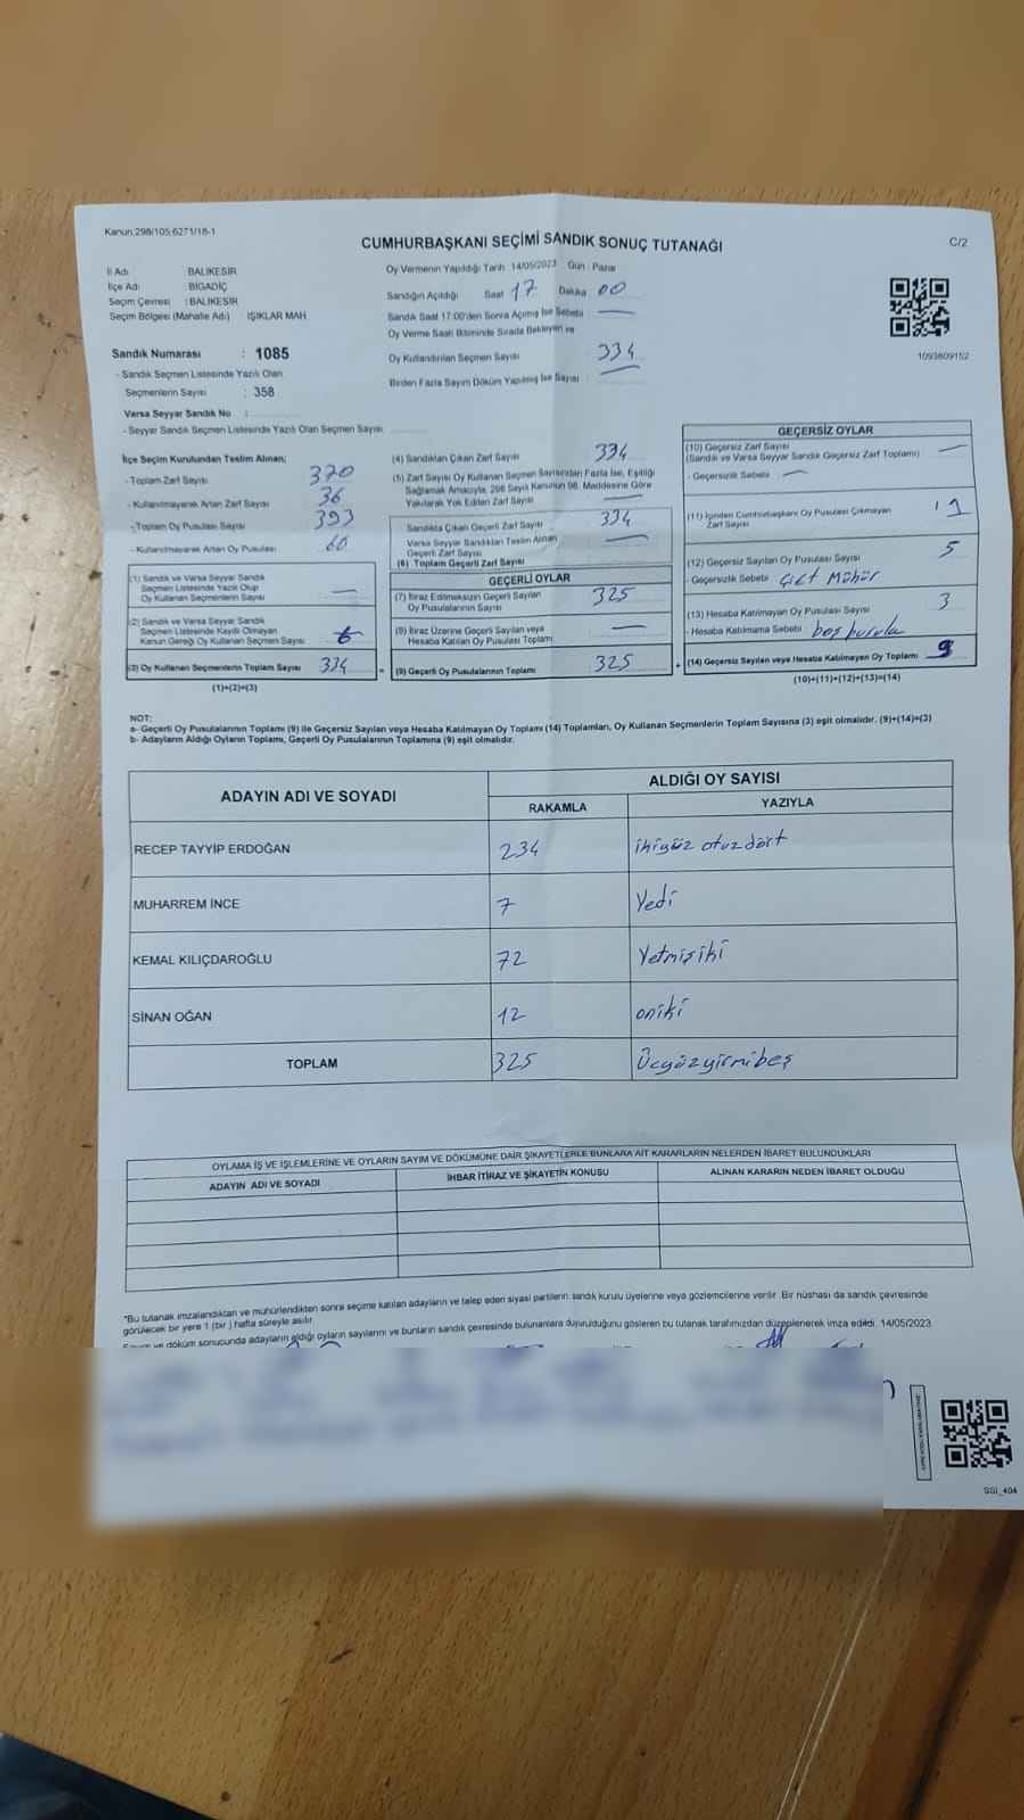 Kanun,298/105,6271/18-1
CUMHURBAŞKANI SEÇİMİ SANDIK SONUÇ TUTANAĞI
C/2
İl Adı : BALIKESİR
İlçe Adı : BİGADİÇ
Seçim Çevresi : BALIKESİR
Seçim Bölgesi (Mahalle Adı) IŞIKLAR MAH
Sandık Numarası : 1085
- Sandık Seçmen Listesinde Yazılı Olan
Seçmenlerin Sayısı : 358
Varsa Seyyar Sandık No :
- Seyyar Sandık Seçmen Listesinde Yazılı Olan Seçmen Sayısı
Oy Vermenin Yapıldığı Tarih 14/05/2023 Gün : Pazar
Sandığın Açıldığı Saat 17 Dakika 00
Sandık Saat 17:00'den Sonra Açılmış İse Sebebi
Oy Verme Saati Bitiminde Sırada Bekleyen ve
Oy Kullandırılan Seçmen Sayısı 334
Birden Fazla Sayım Döküm Yapılmış İse Sayısı
1093809152
İlçe Seçim Kurulundan Teslim Alınan;
- Toplam Zarf Sayısı 370
- Kullanılmayarak Artan Zarf Sayısı 36
- Toplam Oy Pusulası Sayısı 393
- Kullanılmayarak Artan Oy Pusulası 60
(1) Sandık ve Varsa Seyyar Sandık
Seçmen Listesinde Yazılı Olup
Oy Kullanan Seçmenlerin Sayısı —
(2) Sandık ve Varsa Seyyar Sandık
Seçmen Listesinde Kayıtlı Olmayan
Kanun Gereği Oy Kullanan Seçmen Sayısı
(3) Oy Kullanan Seçmenlerin Toplam Sayısı 334
(1)+(2)=(3)
(4) Sandıktan Çıkan Zarf Sayısı 334
(5) Zarf Sayısı Oy Kullanan Seçmen Sayısından Fazla İse, Eşitliği
Sağlamak Amacıyla, 298 Sayılı Kanunun 98. Maddesine Göre
Yakılarak Yok Edilen Zarf Sayısı —
Sandıkta Çıkan Geçerli Zarf Sayısı 334
Varsa Seyyar Sandıktan Teslim Alınan
Geçerli Zarf Sayısı —
(6) Toplam Geçerli Zarf Sayısı
GEÇERLİ OYLAR
(7) İtiraz Edilmeksizin Geçerli Sayılan
Oy Pusulalarının Sayısı 325
(8) İtiraz Üzerine Geçerli Sayılan veya
Hesaba Katılan Oy Pusulası Toplamı —
(9) Geçerli Oy Pusulalarının Toplamı 325
GEÇERSİZ OYLAR
(10) Geçersiz Zarf Sayısı —
(Sandık ve Varsa Seyyar Sandık Geçersiz Zarf Toplamı)
- Geçersizlik Sebebi —
(11) İçinden Cumhurbaşkanı Oy Pusulası Çıkmayan
Zarf Sayısı 1
(12) Geçersiz Sayılan Oy Pusulası Sayısı 5
- Geçersizlik Sebebi Çift Mühür
(13) Hesaba Katılmayan Oy Pusulası Sayısı 3
- Hesaba Katılmama Sebebi boş pusula
(14) Geçersiz Sayılan veya Hesaba Katılmayan Oy Toplamı 9
(10)+(11)+(12)+(13)=(14)
NOT:
a- Geçerli Oy Pusulalarının Toplamı (9) ile Geçersiz Sayılan veya Hesaba Katılmayan Oy Toplamı (14) Toplamları, Oy Kullanan Seçmenlerin Toplam Sayısına (3) eşit olmalıdır. (9)+(14)=(3)
b- Adayların Aldığı Oyların Toplamı, Geçerli Oy Pusulalarının Toplamına (9) eşit olmalıdır.
ADAYIN ADI VE SOYADI
ALDIĞI OY SAYISI
RAKAMLA YAZIYLA
RECEP TAYYİP ERDOĞAN 234 ikiyüz otuzdört
MUHARREM İNCE 7 Yedi
KEMAL KILIÇDAROĞLU 72 Yetmişiki
SİNAN OĞAN 12 oniki
TOPLAM 325 Üçyüzyirmibeş
OYLAMA İŞ VE İŞLEMLERİNE VE OYLARIN SAYIM VE DÖKÜMÜNE DAİR ŞİKAYETLERLE BUNLARA AİT KARARLARIN NELERDEN İBARET BULUNDUKLARI
ADAYIN ADI VE SOYADI İHBAR İTİRAZ VE ŞİKAYETİN KONUSU ALINAN KARARIN NEDEN İBARET OLDUĞU
*Bu tutanak imzalandıktan ve mühürlendikten sonra seçime katılan adayların ve talep eden siyasi partilerin sandık kurulu üyelerine veya gözlemcilerine verilir. Bir nüshası da sandık çevresinde
görülecek bir yere 1 (bir) hafta süreyle asılır.
ve döküm sonucunda adayların aldığı oyların sayılarını ve bunların sandık çevresinde bulunanlara duyurulduğunu gösteren bu tutanak tarafımızdan düzenlenerek imza edildi. 14/05/2023
SSI_404